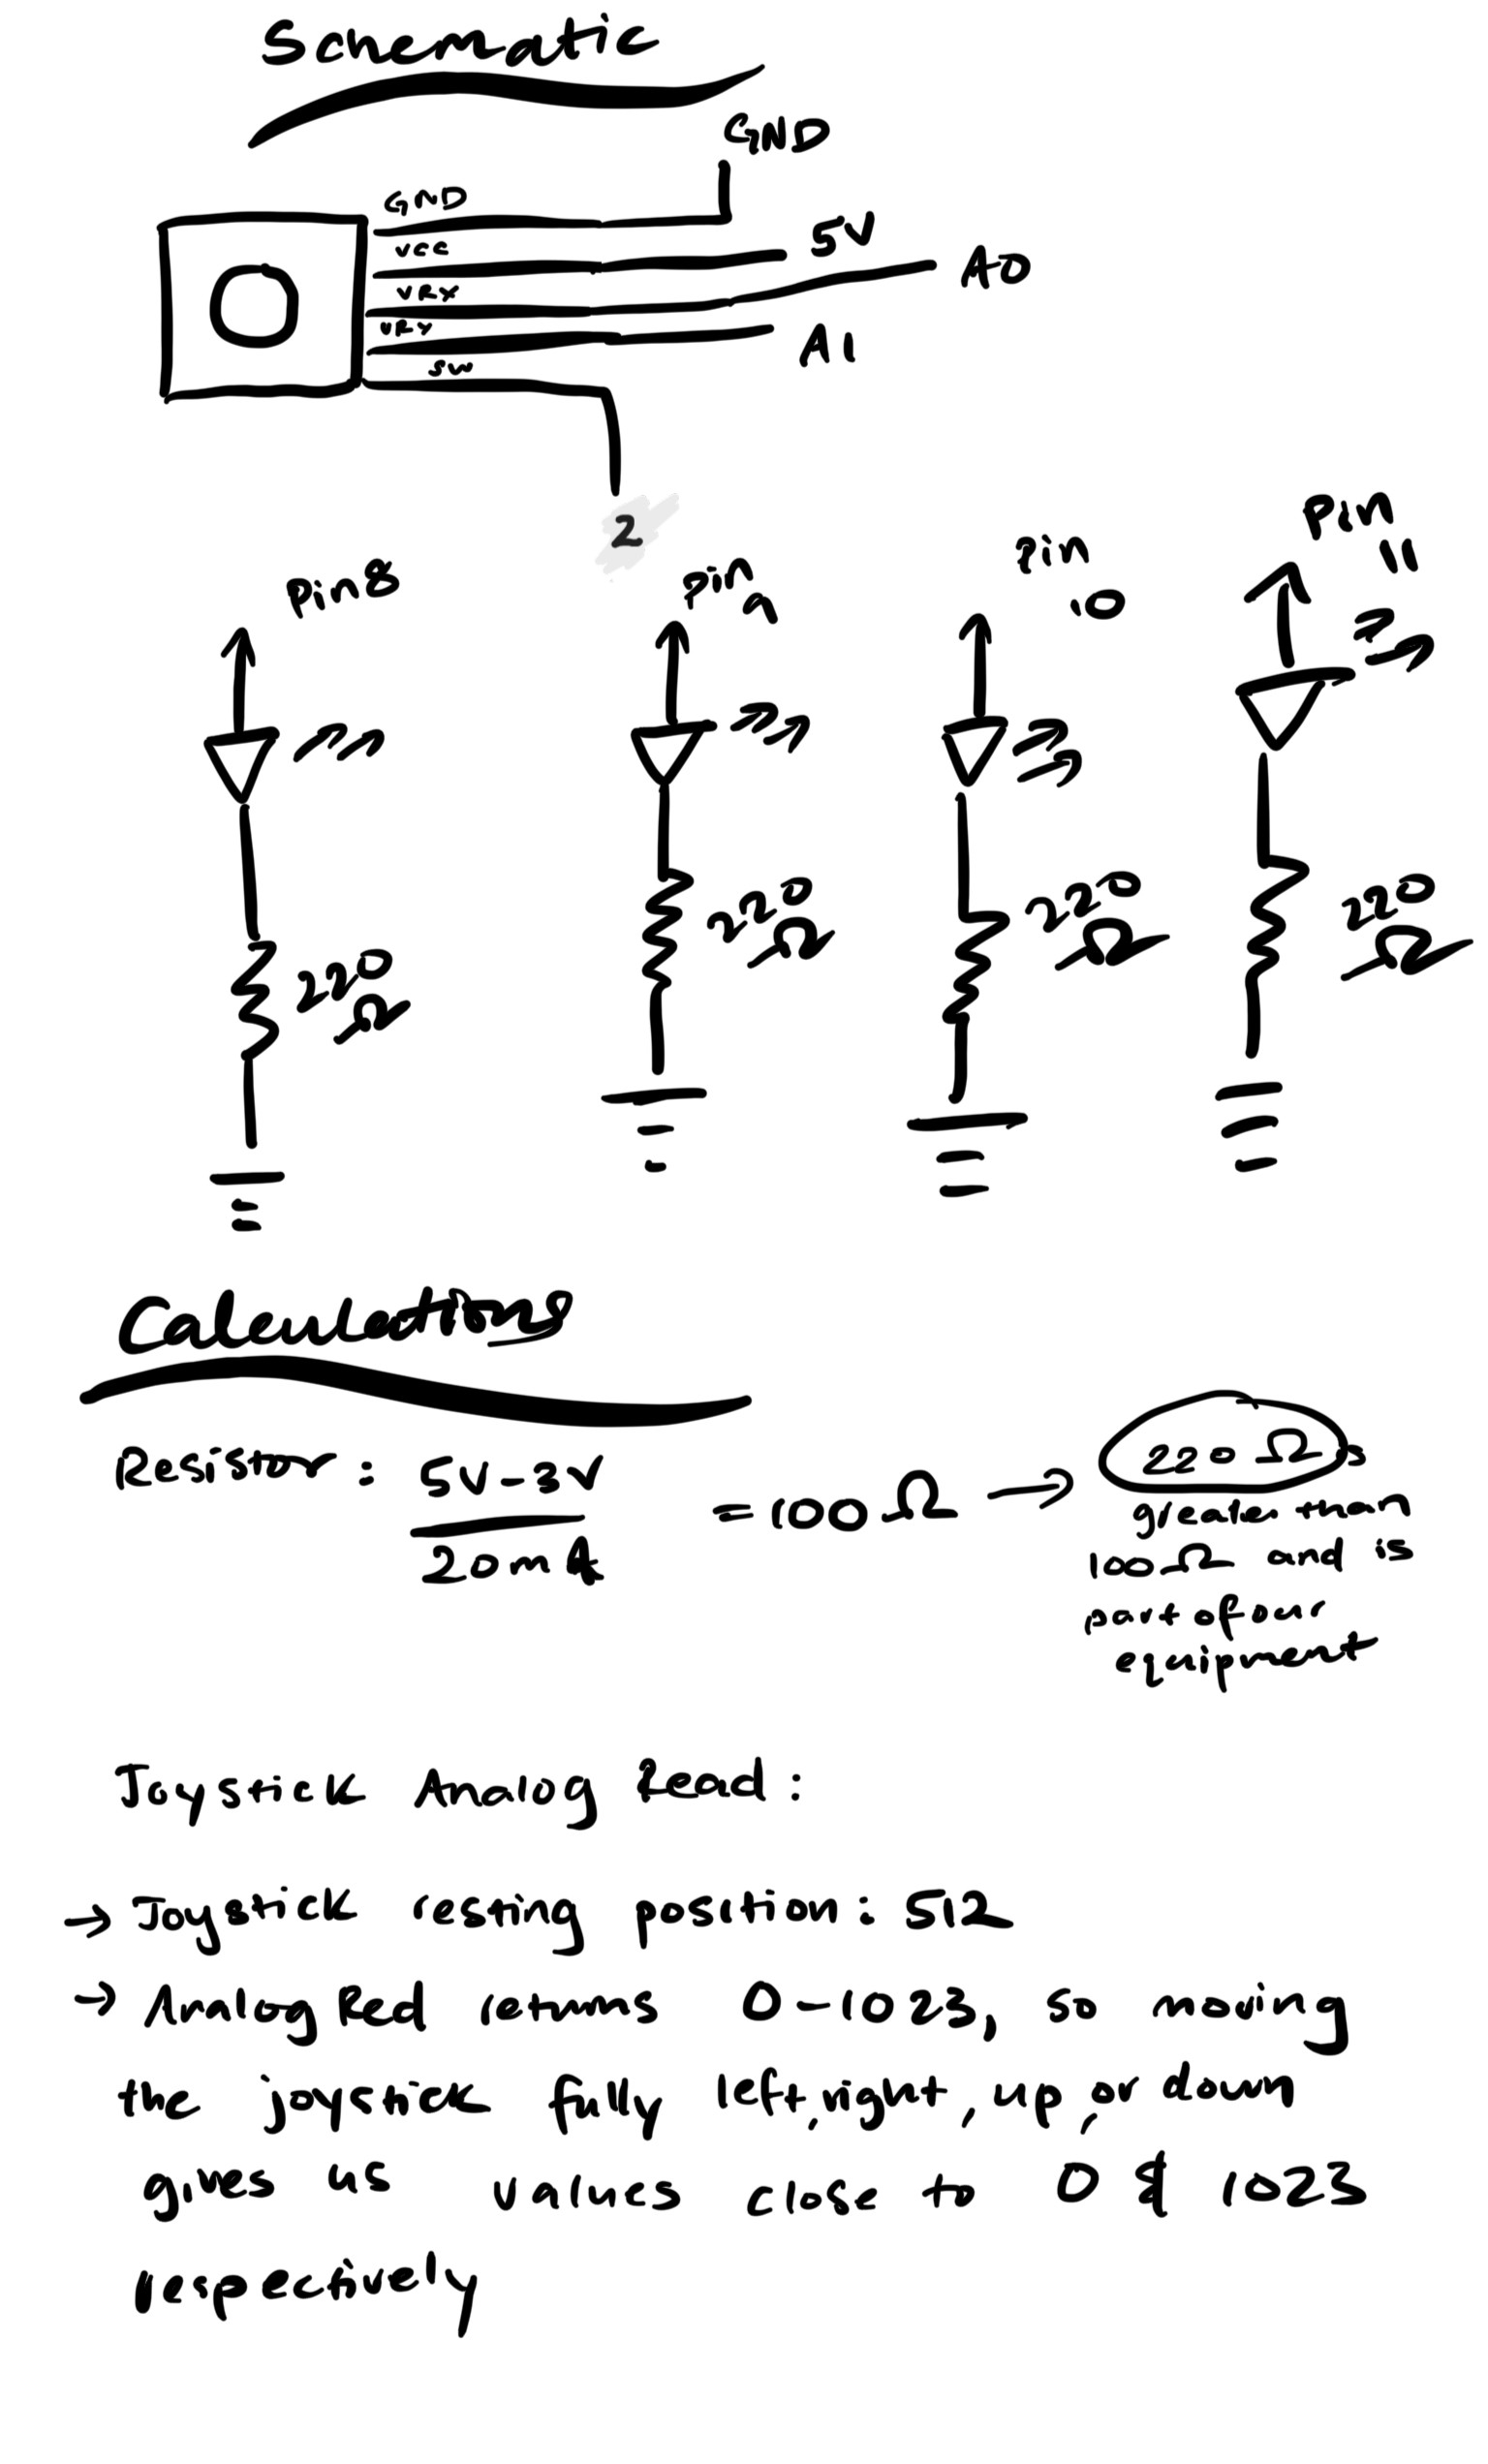 Schematic
GND
GND
VCC
5V
VRX
A0
VRY
A1
SW
2
Pin 8
Pin 9
Pin 10
Pin 11
220 Ω
220 Ω
220 Ω
220 Ω
Calculations
Resistor: 5V-3V / 20mA = 100 Ω → 220 Ω is
greater than
100Ω and is
part of our
equipment
Joystick Analog Read:
→ Joystick resting position: 512
→ Analog Red returns 0-1023, so moving
the joystick fully left, right, up, or down
gives us values close to 0 & 1023
respectively